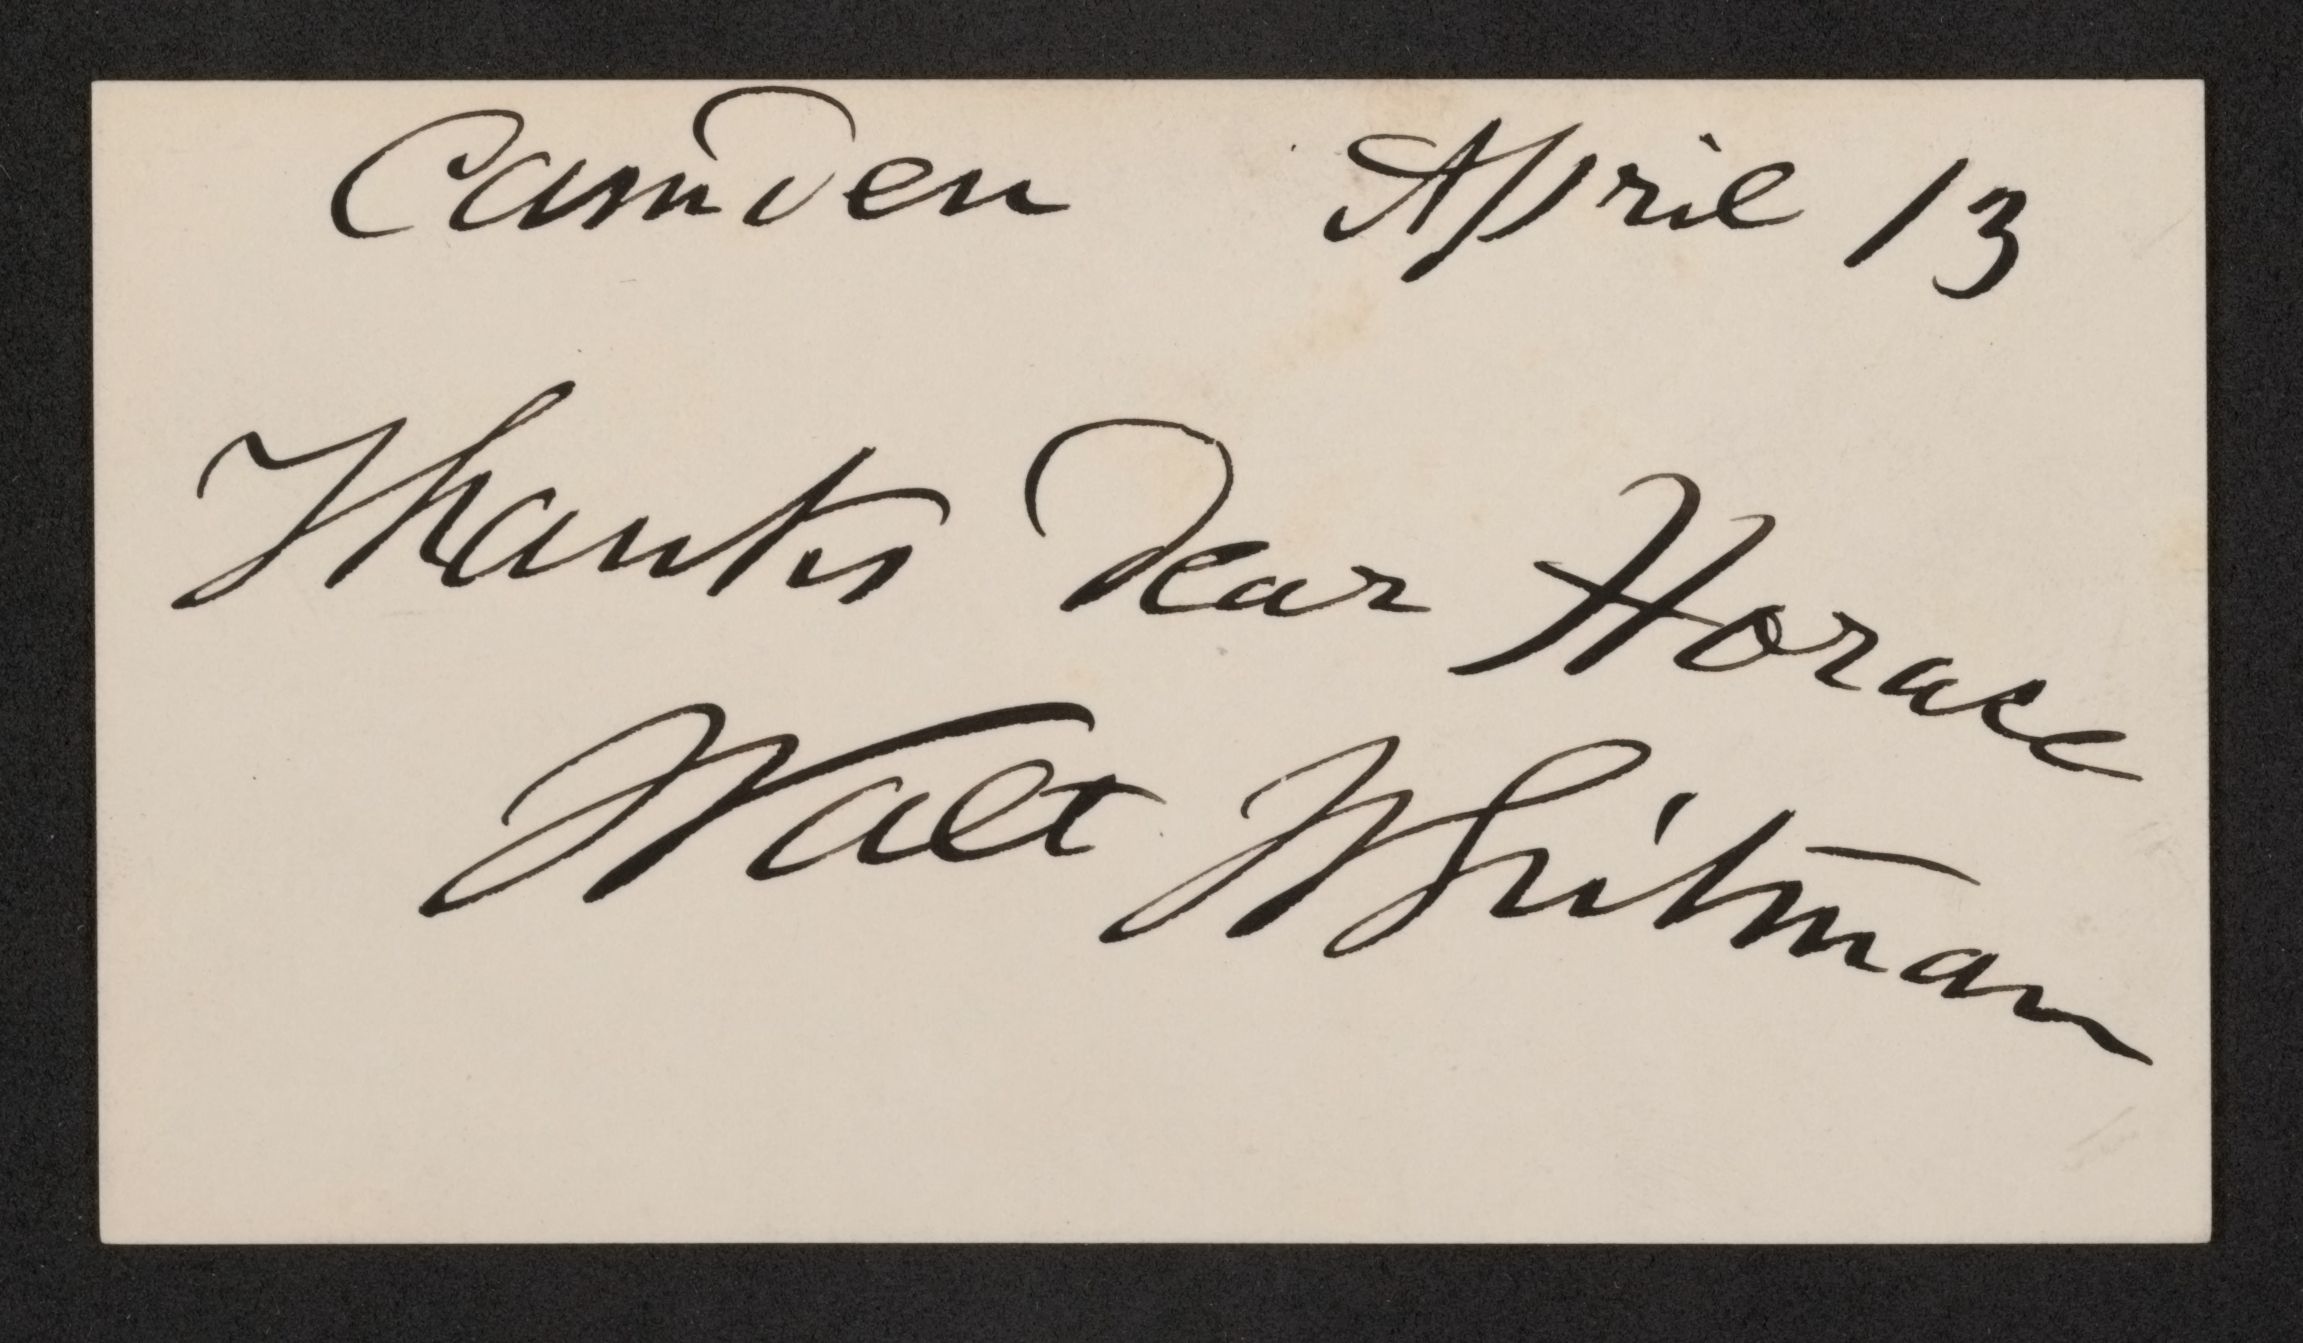 Camden April 13
Thanks Dear Horace
Walt Whitman